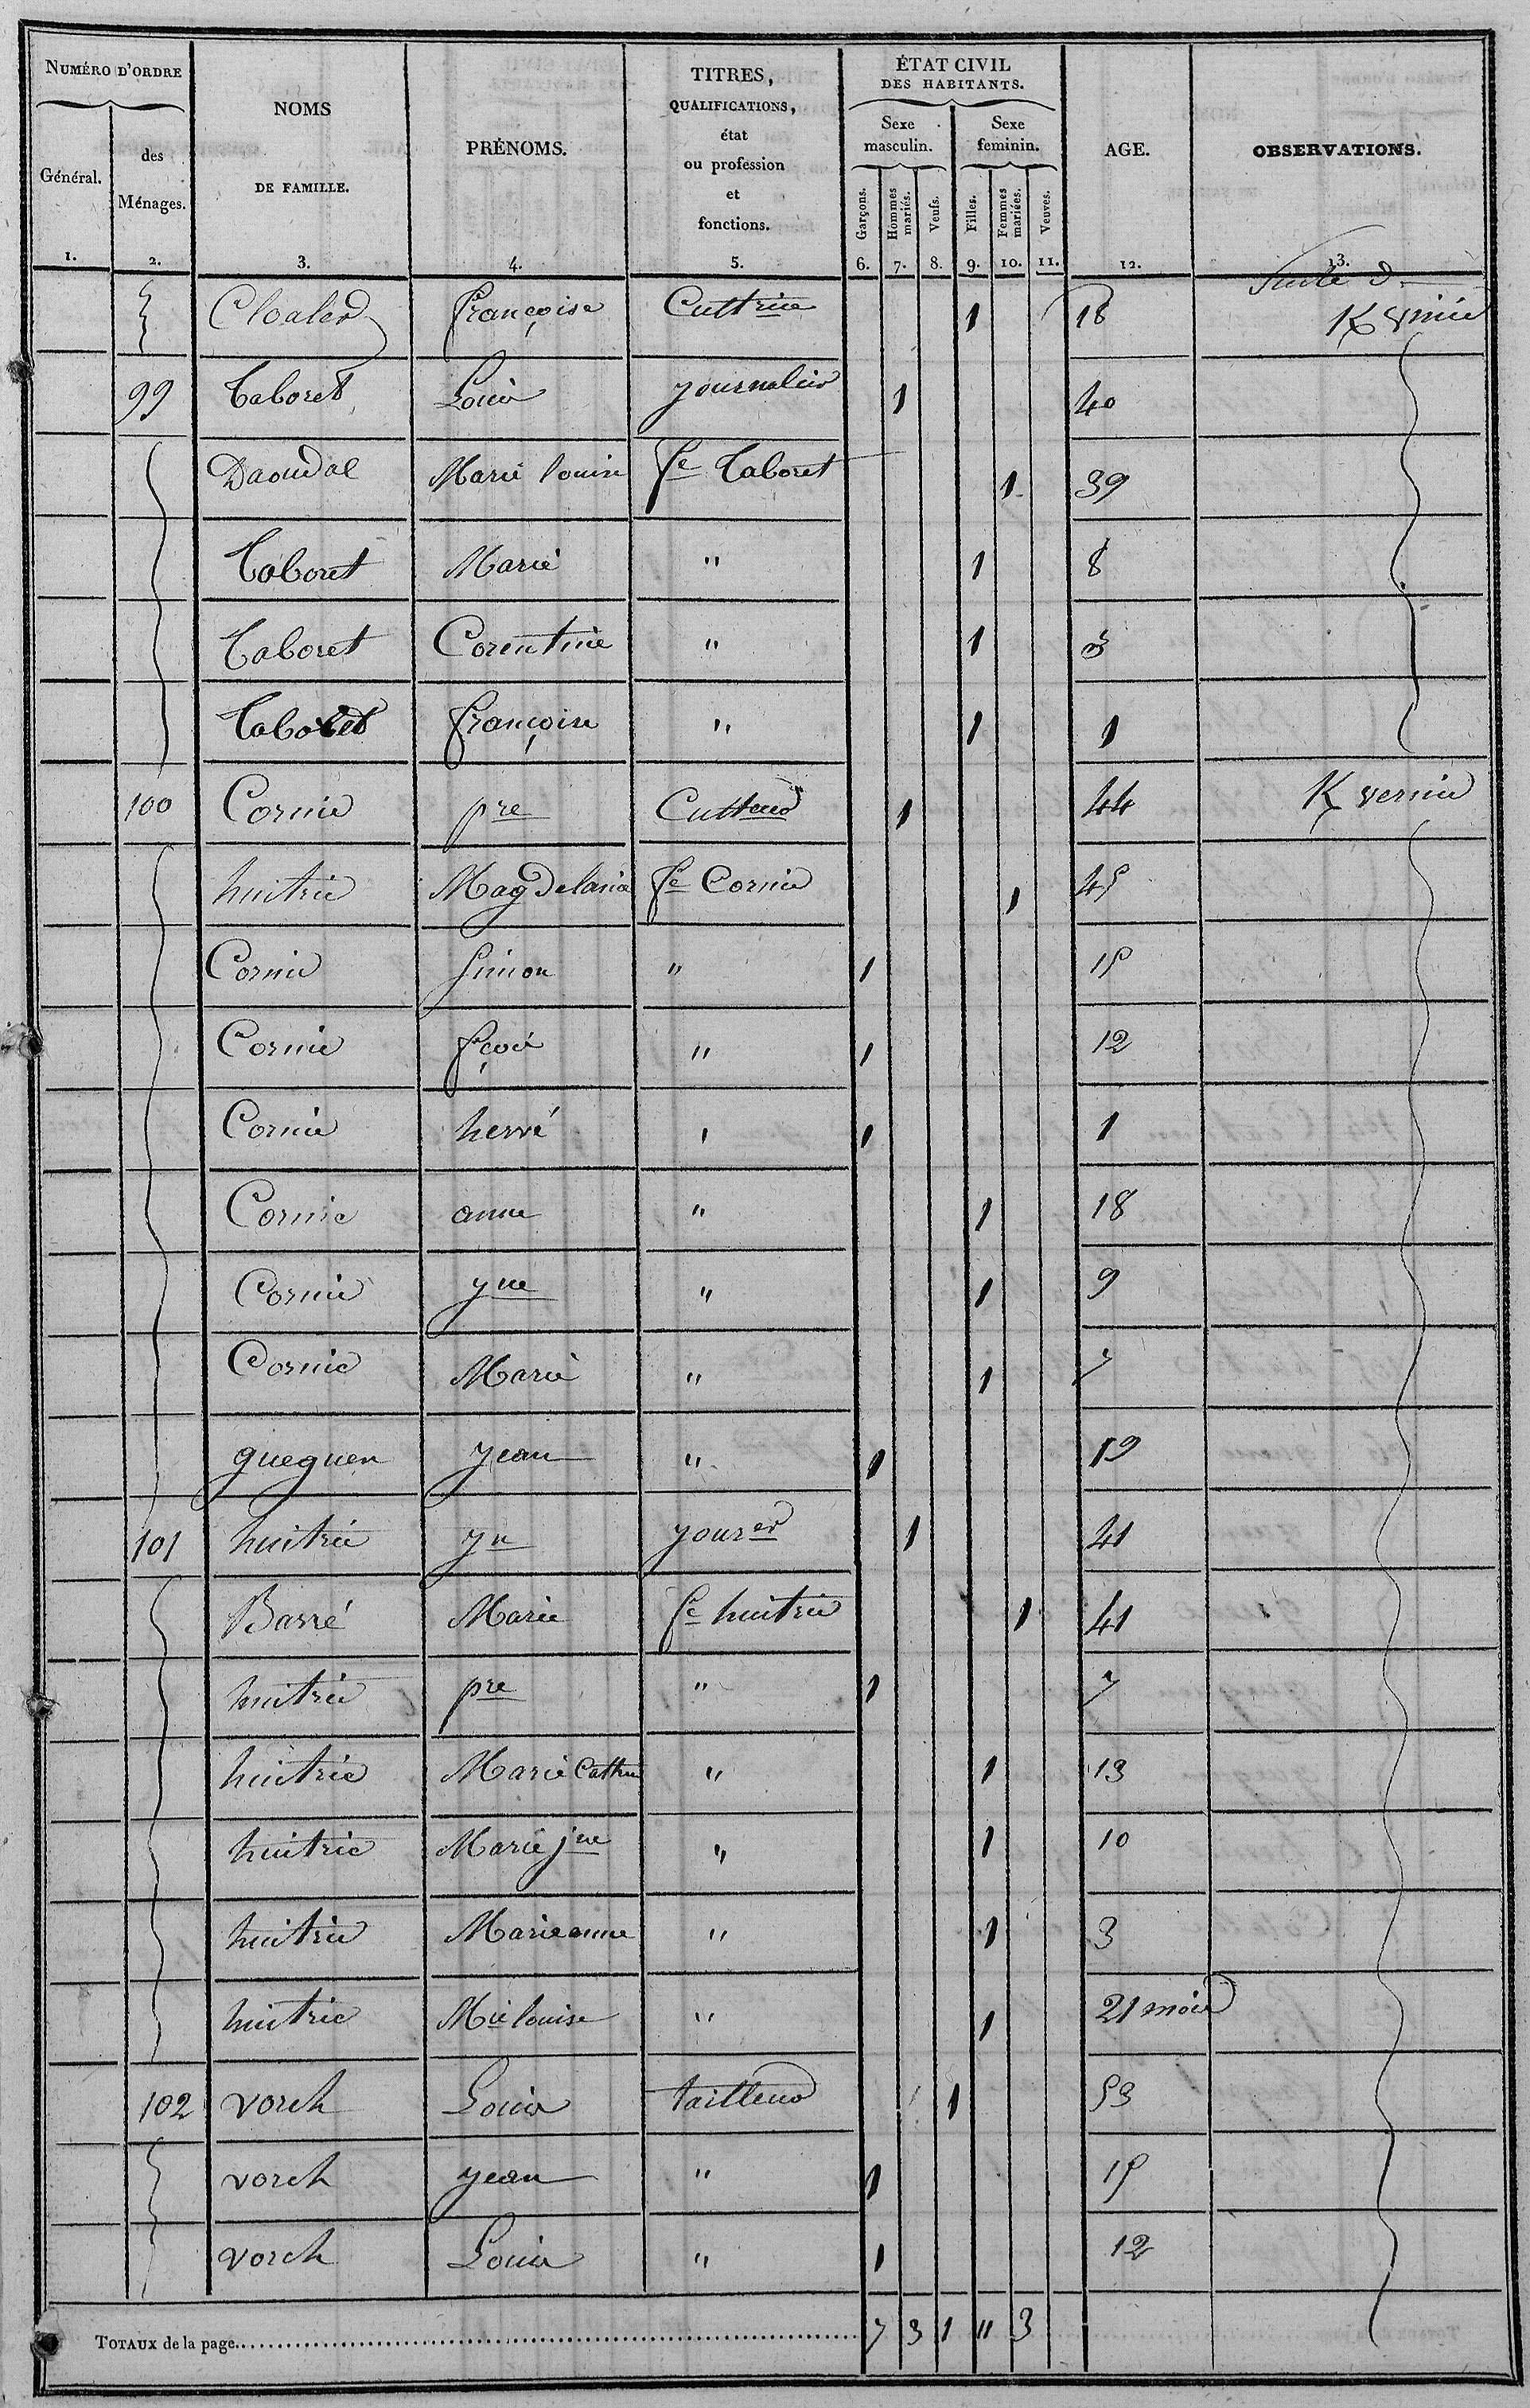 NUMÉRO D'ORDRE
Général.
des
Ménages.
NOMS
DE FAMILLE.
PRÉNOMS.
TITRES,
QUALIFICATIONS,
état
ou profession
et
fonctions.
ÉTAT CIVIL
DES HABITANTS.
Sexe
masculin.
Sexe
feminin.
Garçons.
Hommes
mariés.
Veufs.
Filles.
Femmes
mariées.
Veuves.
AGE.
OBSERVATIONS.
1. 2. 3. 4. 5. 6. 7. 8. 9. 10. 11. 12. 13.
Suite d
Cloaled françoise Cultrice 1 18
99 Taboret Louis journalier 1 40
Daoudal Marie louise fe Taboret 1 39
Taboret Marie " 1 8
Taboret Corentine " 1 3
Taboret françoise " 1 1
100 Cornic pre Culteur 1 44 K vernic
huitric Magdelaine fe Cornic 1 45
Cornic Simon " 1 15
Cornic fçois " 1 12
Cornic hervé " 1 1
Cornic anne " 1 18
Cornic yne " 1 9
Cornic Marie " 1 7
gueguen yean " 1 19
101 huitric yn your er 1 41
Barré Marie fe huitric 1 41
huitric pre " 1 7
huitric Marie Cathne " 1 13
huitric Marie jne " 1 10
huitric Marie anne " 1 3
huitric Mie louise " 1 21 mois
102 vorch Louis tailleur 1 53
vorch yean " 1 15
vorch Louis " 1 12
TOTAUX de la page 7 3 1 11 3